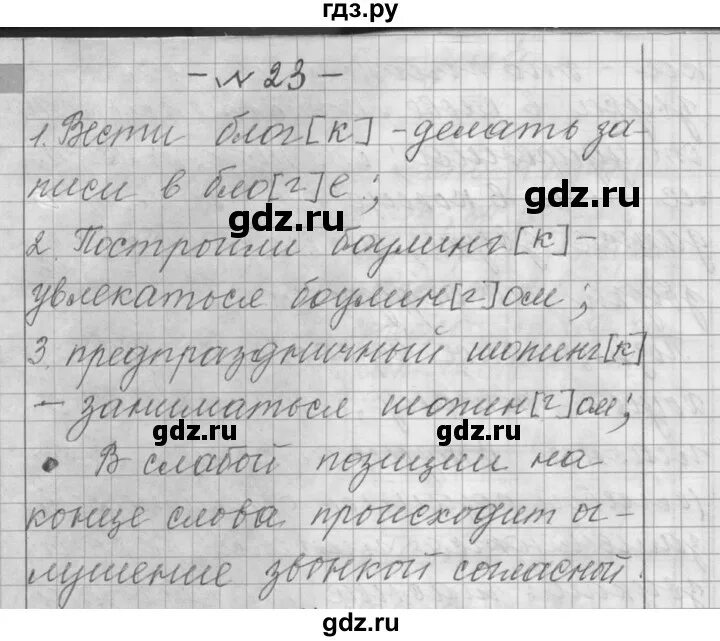 гдз.ру
- № 23 -
1. Вести блог[к] - делать за-
писи в бло[г]е;
gdz.ru gdz.ru
2. Построили боулинг[к] -
увлекаться боулин[г]ом;
3. предпраздничный шопинг[к]
- заниматься шопин[г]ом;
gdz.ru gdz.ru
• В слабой позиции на
конце слова происходит ог-
лушение звонкой согласной.
gdz.ru